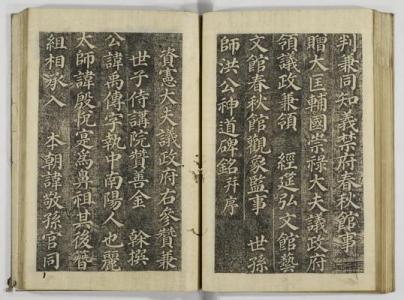 判兼同知義禁府春秋館事
贈大匡輔國崇祿大夫議政府
領議政兼領 經筵弘文館藝
文館春秋館觀象監事 世孫
師洪公神道碑銘 幷序
資憲大夫議政府右參贊兼
世子侍講院贊善金 榦撰
公諱禹傳字執中南陽人也麗
太師諱殷悅寔爲鼻祖其後簪
組相承入 本朝諱敬孫官同